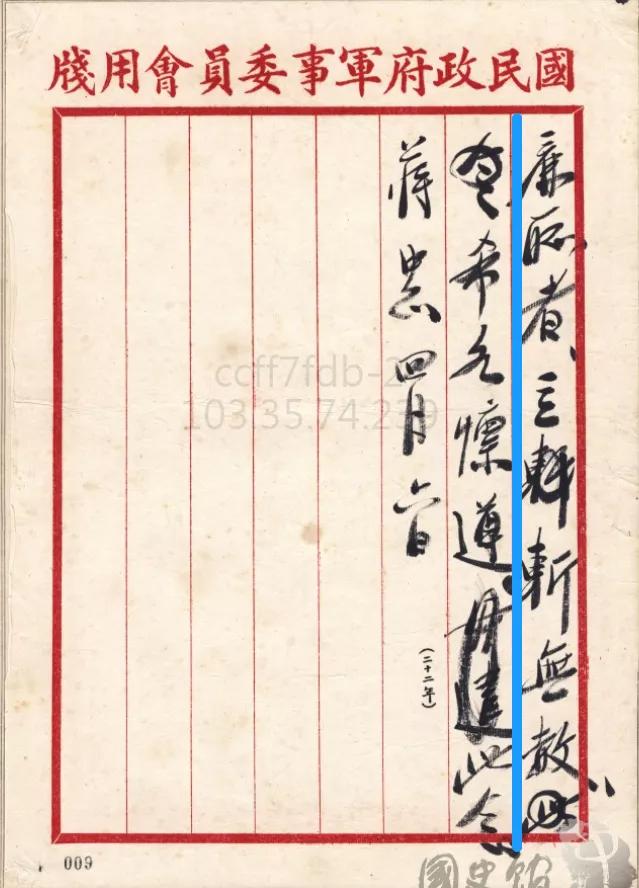 國民政府軍事委員會用牋
者、立斬無赦
希各懍遵毋違此令
蔣中正 四月六日
(二十二年)
ccff7fdb-2
103.35.74.239
009
國史館